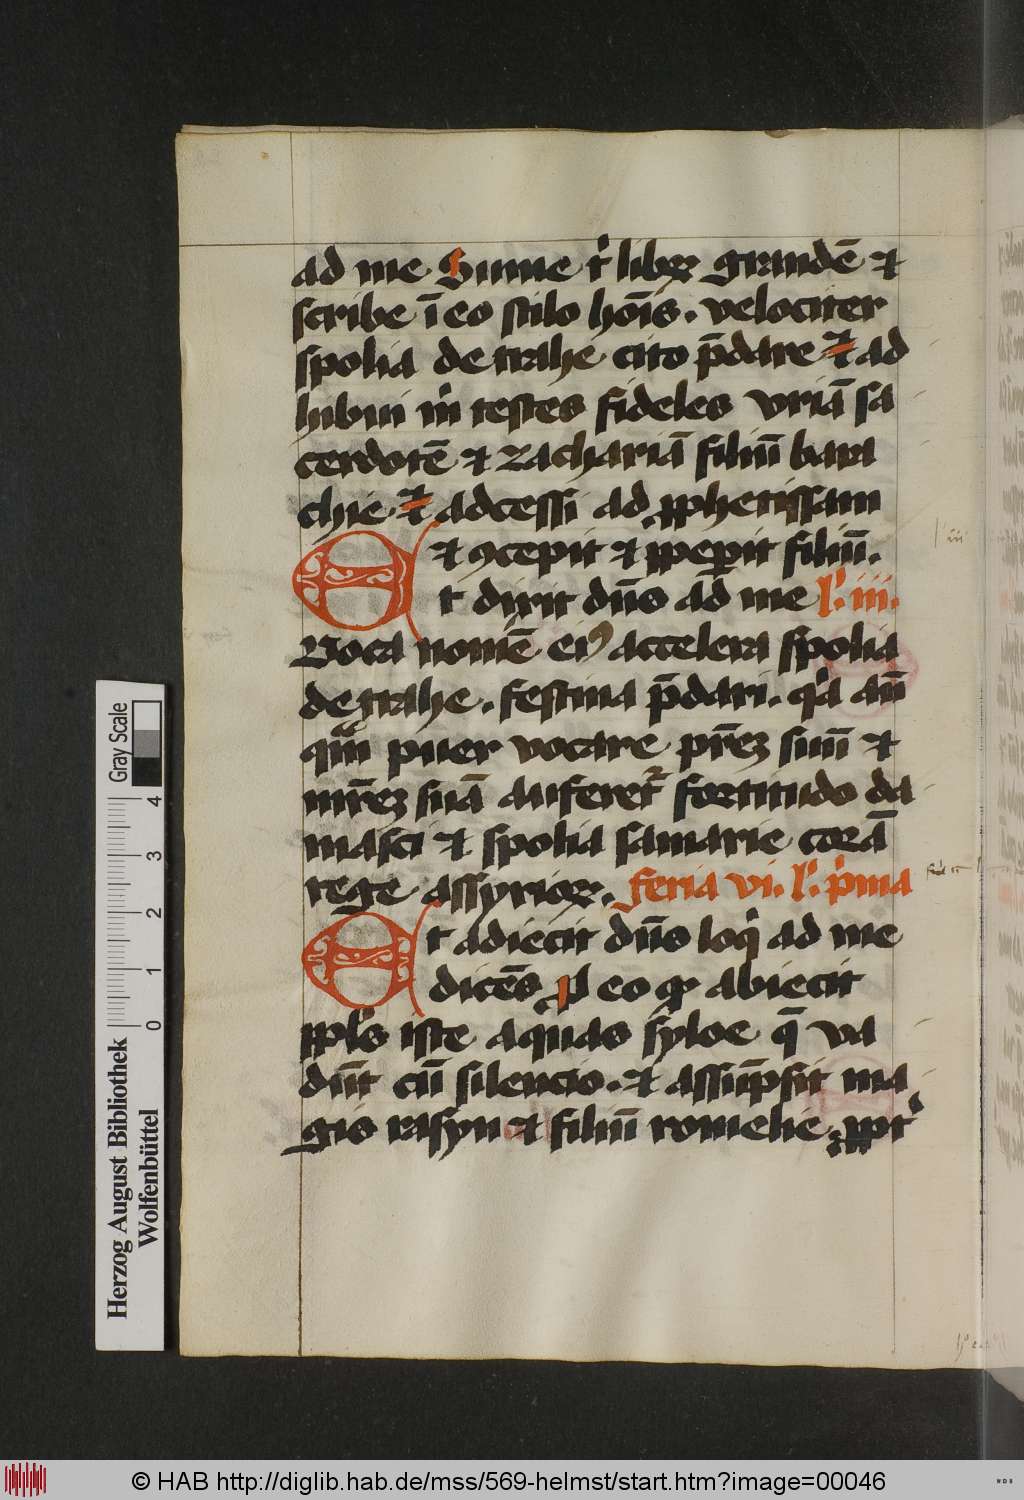 ad me Sume t̾ libꝝ grandē ⁊
scribe ī eo stilo hoīs. velociter
spolia de trahe cito p̄dare ⁊ ad
hibui m̾ testes fideles vriā sa
cerdotē ⁊ zachariā filiū bara
chie ⁊ adcessi ad ꝓphetissam
⁊ ꝯcepit ⁊ peꝑit filiū.
Et dixit dn̄s ad me l̾. iii.
Voca nomē eiꝰ accelera spolia
de trahe. festina p̄dari. q̾a an̄
qm̄ puer vocare pr̄eʒ suū ⁊
mr̄eʒ suā auferet᷑ fortitudo da
masci ⁊ spolia samarie corā
rege assyrioꝝ. feria vi. l̾. p̾ma
Et adiecit dn̄s loq̾ ad me
dicēs P eo qꝛ abiecit
ppl̾s iste aquas syloe q̄ va
dūt cū silencio. ⁊ assūpsit ma
gis rasyn ⁊ filiū romelie. ꝓpt̾
Gray Scale
4
3
2
1
0
Herzog August Bibliothek
Wolfenbüttel
© HAB http://diglib.hab.de/mss/569-helmst/start.htm?image=00046